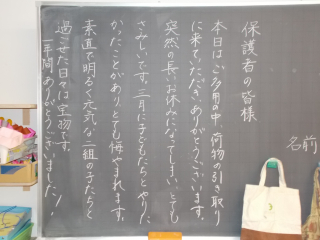 保護者の皆様
本日はご多用の中、荷物の引き取り
に来ていただきありがとうございます。
突然の長いお休みとなってしまい、とても
さみしいです。三月に子どもたちとやりた
かったことがあり、とても悔やまれます。
素直で明るく元気な二組の子たちと
過ごせた日々は宝物です。
一年間、ありがとうございました！
名前